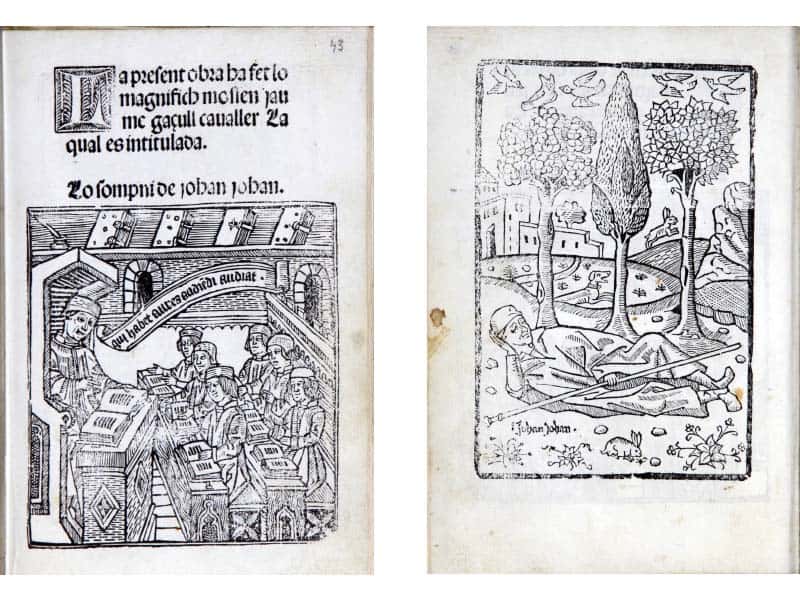 43
La present obra ha fet lo
magnifich mosien jau
me gaçull caualler La
qual es intitulada.
Lo sompni de johan johan.
qui habet aures audiēdi audiat.
Johan Johan.